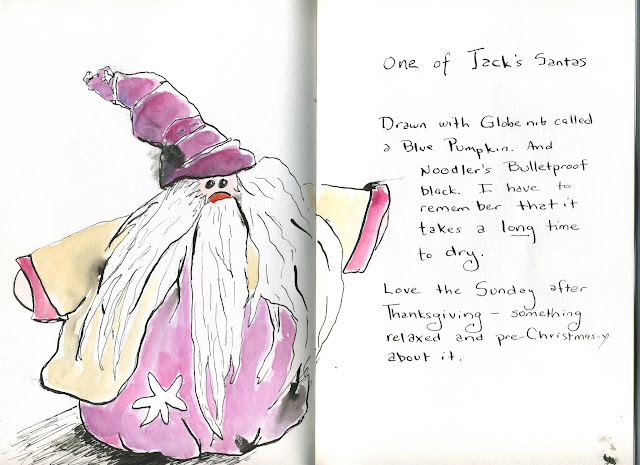 One of Jack's Santas
Drawn with Globe nib called
a Blue Pumpkin. And
Noodler's Bulletproof
black. I have to
remember that it
takes a long time
to dry.
Love the Sunday after
Thanksgiving – something
relaxed and pre-Christmas-y
about it.